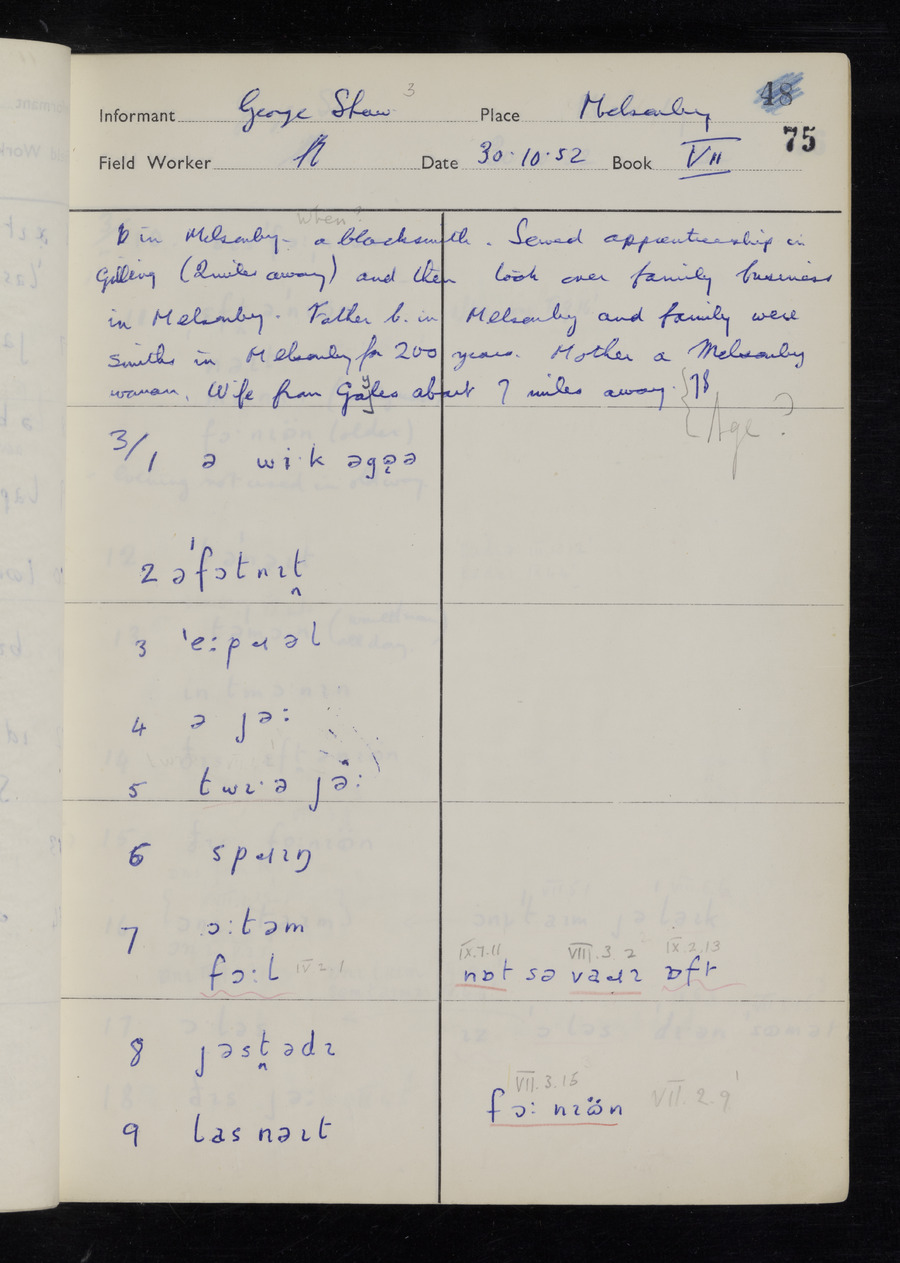 48
75
Informant George Shaw 3 Place Melsonby
Field Worker Date 30.10.52 Book VII
When?
b in Melsonby - a blacksmith. Served apprenticeship in
Gilling (2 miles away) and then took over family business
in Melsonby. Father b. in Melsonby and family were
smiths in Melsonby for 200 years. Mother a Melsonby
woman. Wife from Gayles about 7 miles away.
Age?
3/1 ə wi·k əgɪ̣ə
2 ə'fɔtnɪt̪
3 'e:pɹəl
4 ə jə:
5 twɪ·ə jə̈:
6 spɹɪŋ
7 ɔ:təm
fɔ:l IV 2. 1
IX.7.11 VIII.3 2 IX.2.13
nɒt sə vaɹɪ ɒft
8 jəst̪ədɪ
VII.3.15
fɔ: nɪön VII.2.9
9 las nəɪt